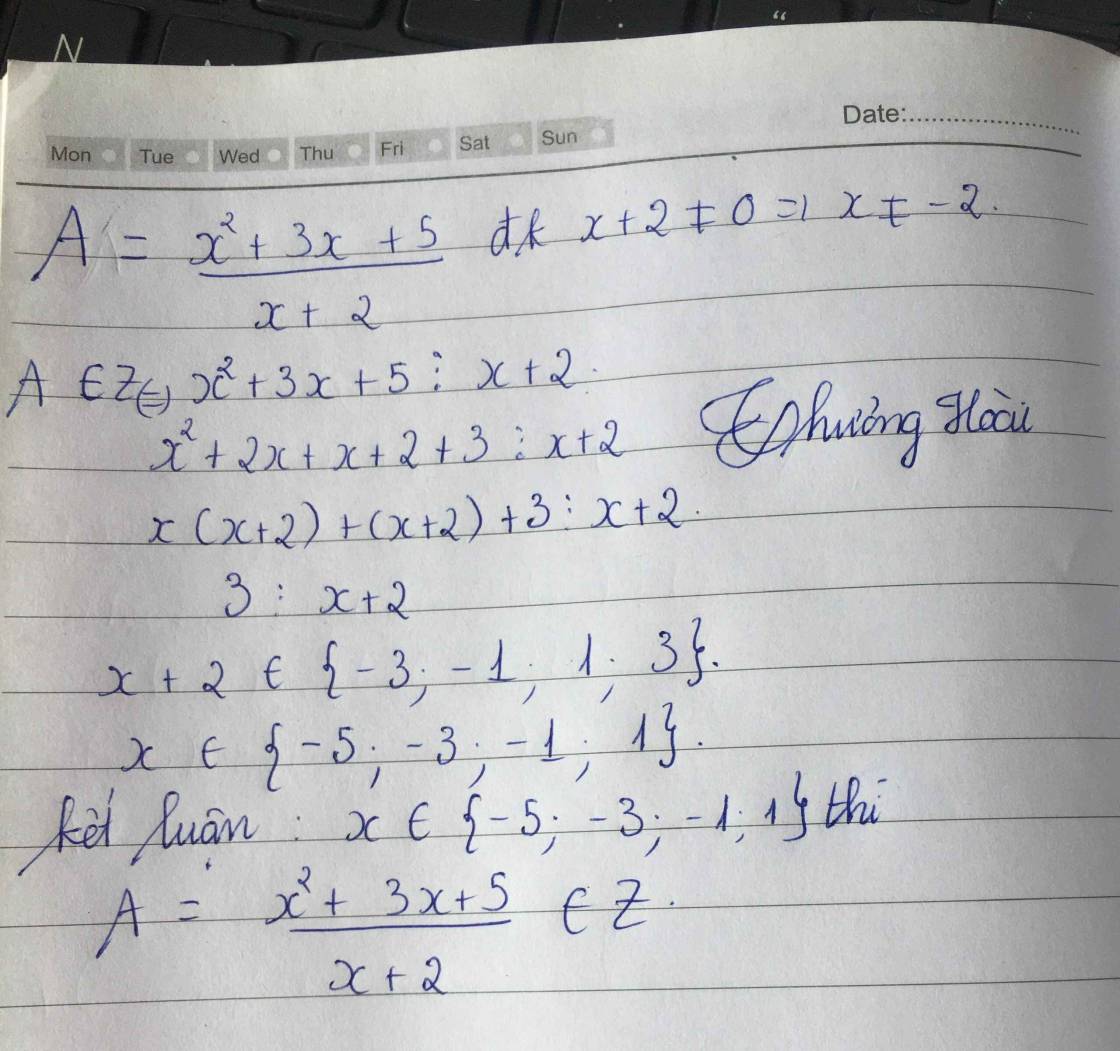 N
“
Date:
Mon Tue Wed Thu Fri Sat Sun
A = x² + 3x + 5 đk x + 2 ≠ 0 => x ≠ -2.
x + 2
A ∈ Z (=) x² + 3x + 5 ⋮ x + 2.
x² + 2x + x + 2 + 3 ⋮ x + 2
x (x+2) + (x+2) + 3 ⋮ x + 2.
3 ⋮ x + 2
x + 2 ∈ {-3; -1; 1; 3}.
x ∈ {-5; -3; -1; 1}.
kết luận : x ∈ {-5; -3; -1; 1} thì
A = x² + 3x + 5 ∈ Z.
x + 2